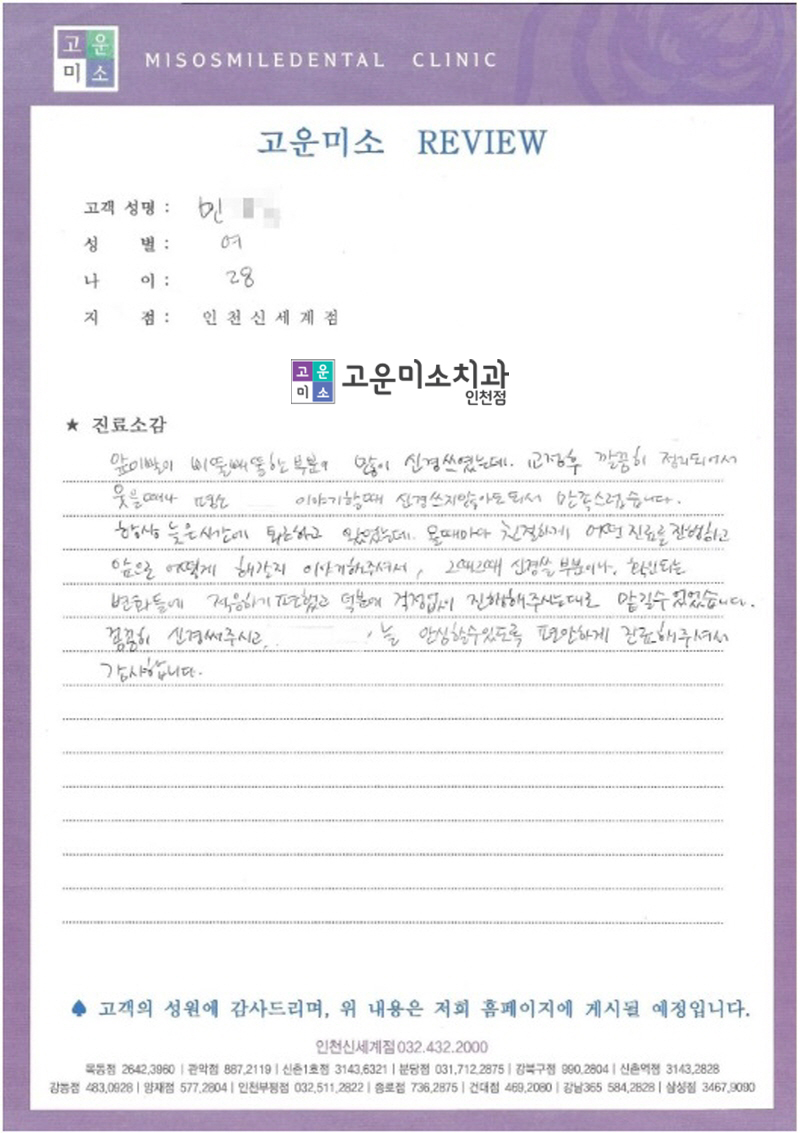 고운
미소
MISOSMILEDENTAL CLINIC
고운미소 REVIEW
고객 성명 : 민
성 별 : 여
나 이 : 28
지 점 : 인천신세계점
고운
미소
고운미소치과
인천점
★ 진료소감
앞이빨이 삐뚤빼뚤한 부분이 많이 신경쓰였는데. 교정후 깔끔히 정리되어서
웃을때나 평소 이야기할때 신경쓰지않아도되서 만족스럽습니다.
항상 늦은시간에 퇴근하고 왔었는데. 올때마다 친절하게 어떤진료를진행하고
앞으로 어떻게 해갈지 이야기해주셔서, 그때그때 신경쓸 부분이나, 확인되는
변화들에 적응하기편했고 덕분에 걱정없이 진행해주시는대로 맡길수있었습니다.
꼼꼼히 신경써주시고, 늘 안심할수있도록 편안하게 진료해주셔서
감사합니다.
♠ 고객의 성원에 감사드리며, 위 내용은 저희 홈페이지에 게시될 예정입니다.
인천신세계점 032.432.2000
목동점 2642,3960 | 관악점 887,2119 | 신촌1호점 3143,6321 | 분당점 031,712,2875 | 강북구점 990,2804 | 신촌역점 3143,2828
강동점 483,0928 | 양재점 577,2804 | 인천부평점 032,511,2822 | 종로점 736,2875 | 건대점 469,2080 | 강남365 584,2828 | 삼성점 3467,9090